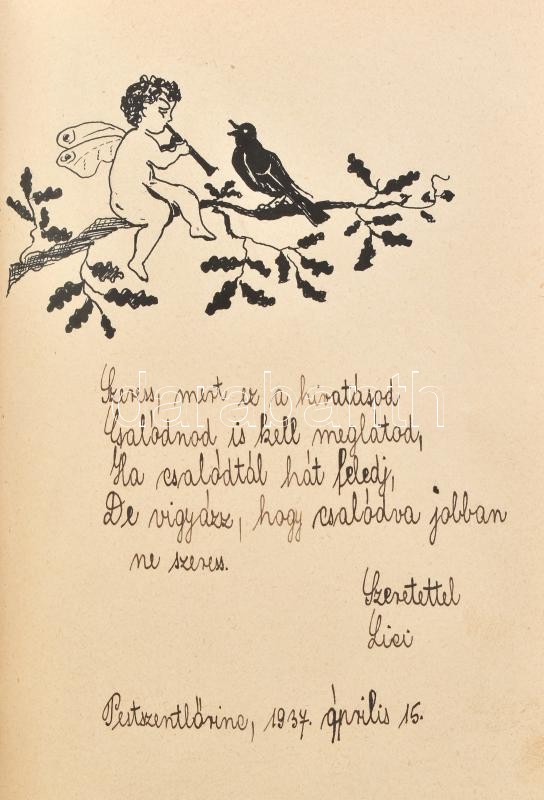 Szeress, mert ez a hivatásod
Csalódnod is kell meglátod,
Ha csalódtál hát feledj,
De vigyázz, hogy csalódva jobban
ne szeress.
Szeretettel
Lici
Pestszentlőrinc, 1937. április 15.
darabanth